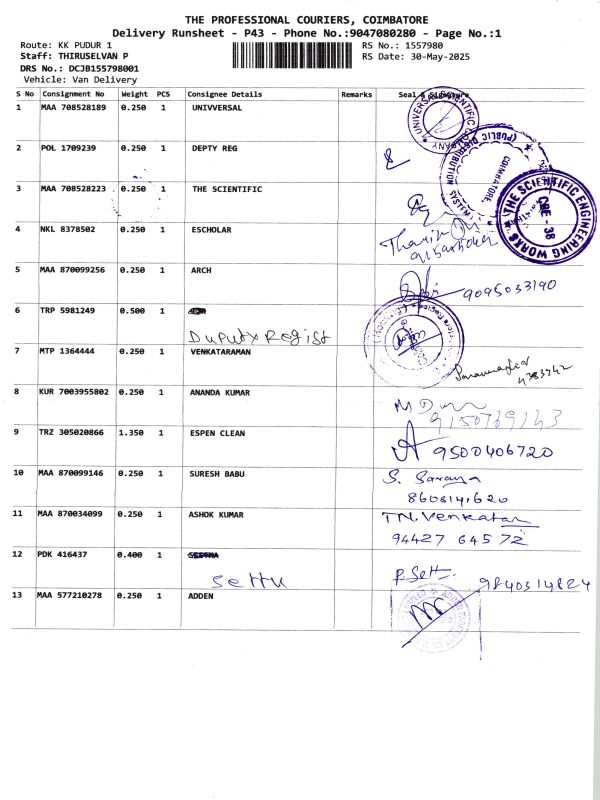 THE PROFESSIONAL COURIERS, COIMBATORE
Delivery Runsheet - P43 - Phone No.:9047080280 - Page No.:1
Route: KK PUDUR 1 RS No.: 1557980
Staff: THIRUSELVAN P RS Date: 30-May-2025
DRS No.: DCJB155798001
Vehicle: Van Delivery
S No Consignment No Weight PCS Consignee Details Remarks Seal & Signature
1 MAA 708528189 0.250 1 UNIVVERSAL
UNIVERSAL SCIENTIFIC COMPANY
2 POL 1709239 0.250 1 DEPTY REG
(PUBLIC DISTRIBUTION SYSTEM) COIMBATORE
3 MAA 708528223 0.250 1 THE SCIENTIFIC
THE SCIENTIFIC ENGINEERING WORKS
CBE - 38
4 NKL 8378502 0.250 1 ESCHOLAR
5 MAA 870099256 0.250 1 ARCH
9095033190
6 TRP 5981249 0.500 1
Duputy Regist
7 MTP 1364444 0.250 1 VENKATARAMAN
8 KUR 7003955802 0.250 1 ANANDA KUMAR
9150789143
9 TRZ 305020866 1.350 1 ESPEN CLEAN
9500406720
10 MAA 870099146 0.250 1 SURESH BABU S. Saranya
8608141620
11 MAA 870034099 0.250 1 ASHOK KUMAR TN.Venkatan
94427 64572
12 PDK 416437 0.400 1
Settu R Sett 9840314824
13 MAA 577210278 0.250 1 ADDEN